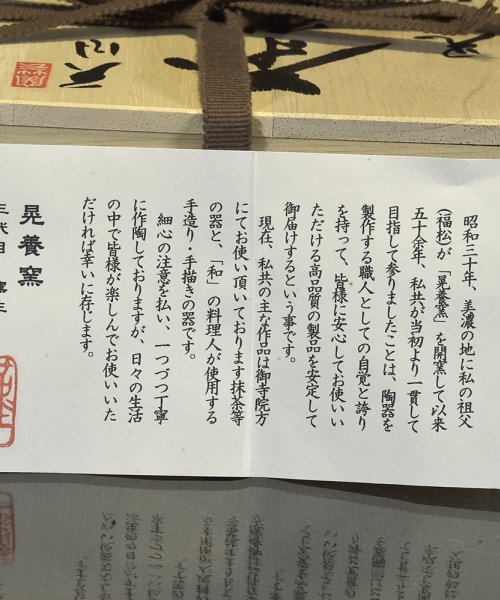 昭和三十年、美濃の地に私の祖父
(福松)が「晃養窯」を開窯して以来
五十余年、私共が当初より一貫して
目指して参りましたことは、陶器を
製作する職人としての自覚と誇り
を持って、皆様に安心してお使いい
ただける高品質の製品を安定して
御届けするという事です。
現在、私共の主な作品は御寺院方
にてお使い頂いております抹茶等
の器と、「和」の料理人が使用する
手造り・手描きの器です。
細心の注意を払い、一つづつ丁寧
に作陶しておりますが、日々の生活
の中で皆様が楽しんでお使いいた
だければ幸いに存じます。
晃養窯
三代目